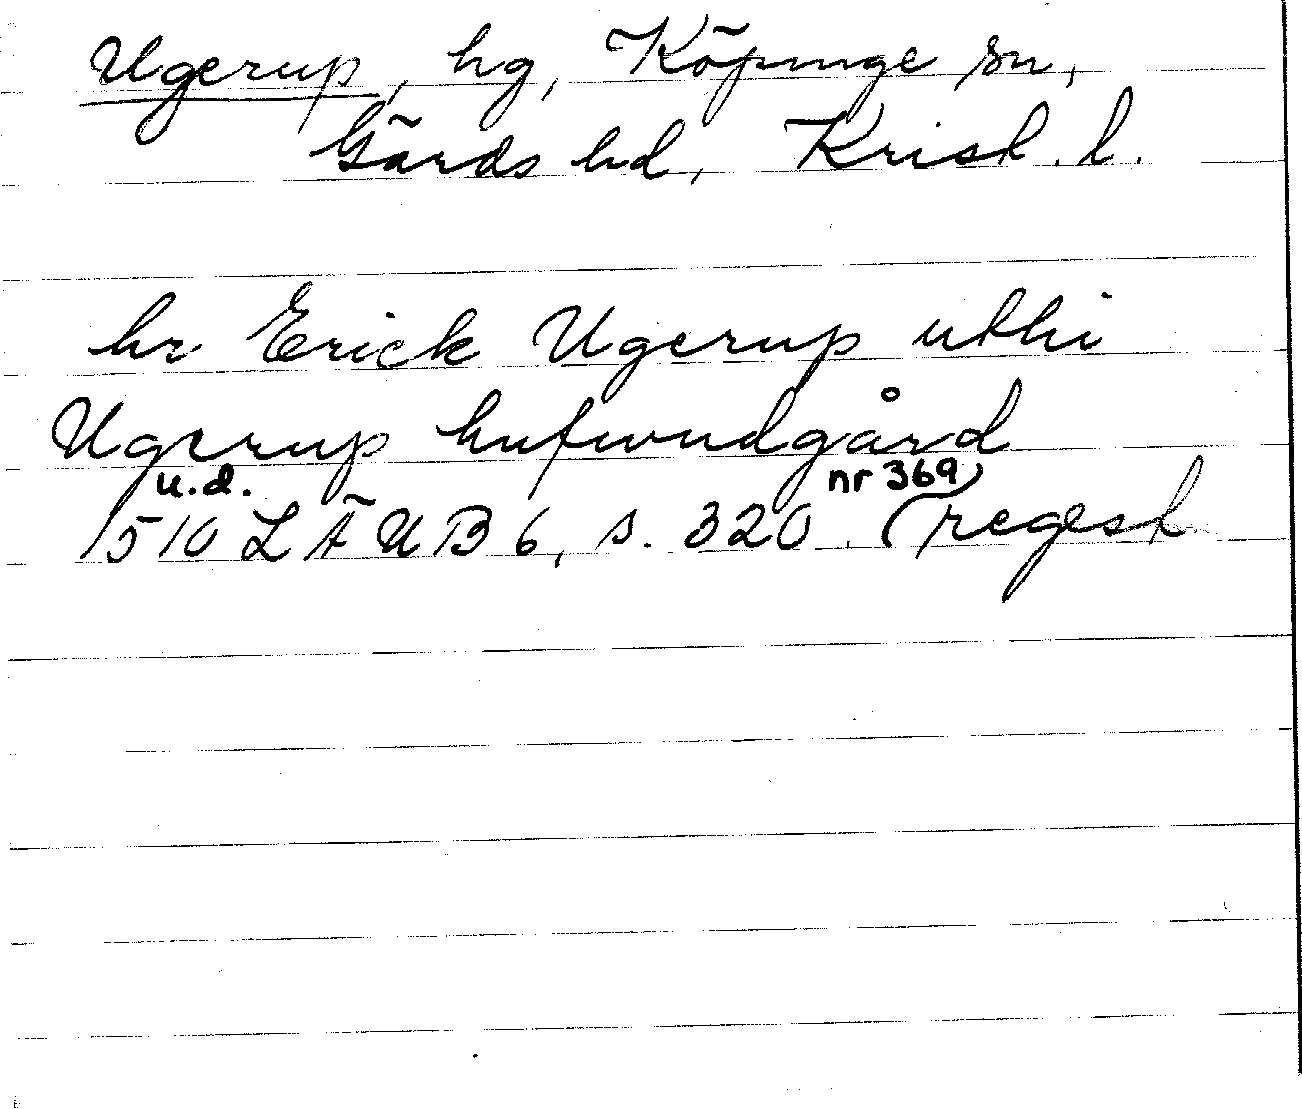 Ugerup, hg, Köpinge sn,
Gärds hd, Krist. l.
hr Erick Ugerup uthi
Ugerup hufwudgård
u.d. nr 369)
1510 LÄUB 6, s. 320. (regest